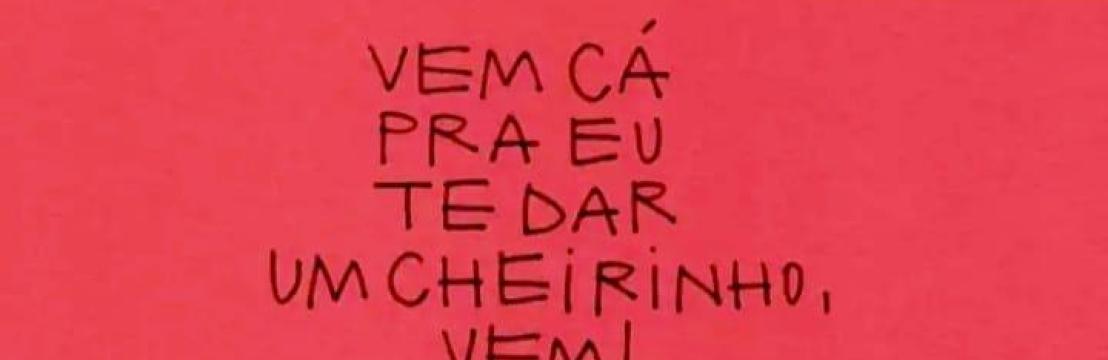 VEM CÁ
PRA EU
TE DAR
UM CHEiRiNHO,
VEM!